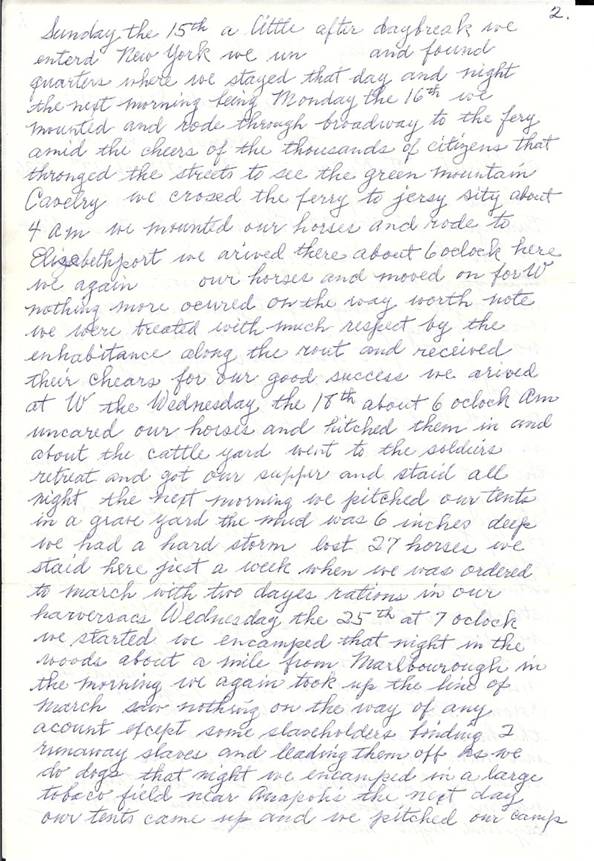 2.
Sunday the 15th a little after daybreak we
enterd New York we un and found
quarters where we stayed that day and night
the next morning being Monday the 16th we
mounted and rode through broadway to the fery
amid the cheers of the thousands of citizens that
thronged the streets to see the green mountain
Cavelry we crosed the ferry to jersy sity about
4 am we mounted our horses and rode to
Elizabethport we arived there about 6 oclock here
we again our horses and moved on for W
nothing more ocured on the way worth note
we were treated with much respect by the
enhabitance along the rout and received
their chears for our good success we arived
at W the Wednesday the 18th about 6 oclock am
uncared our horses and hitched them in and
about the cattle yard went to the soldiers
retreat and got our supper and staid all
night the next morning we pitched our tents
in a grave yard the mud was 6 inches deep
we had a hard storm lost 27 horses we
staid here just a week when we was ordered
to march with two dayes rations in our
harversacs Wednesday the 25th at 7 oclock
we started we encamped that night in the
woods about a mile from Marlbourough in
the morning we again took up the line of
march saw nothing on the way of any
acount except some slaveholders binding 2
runaway slaves and leading them off as we
do dogs that night we encamped in a large
tobaco field near Anapolis the next day
our tents came up and we pitched our camp